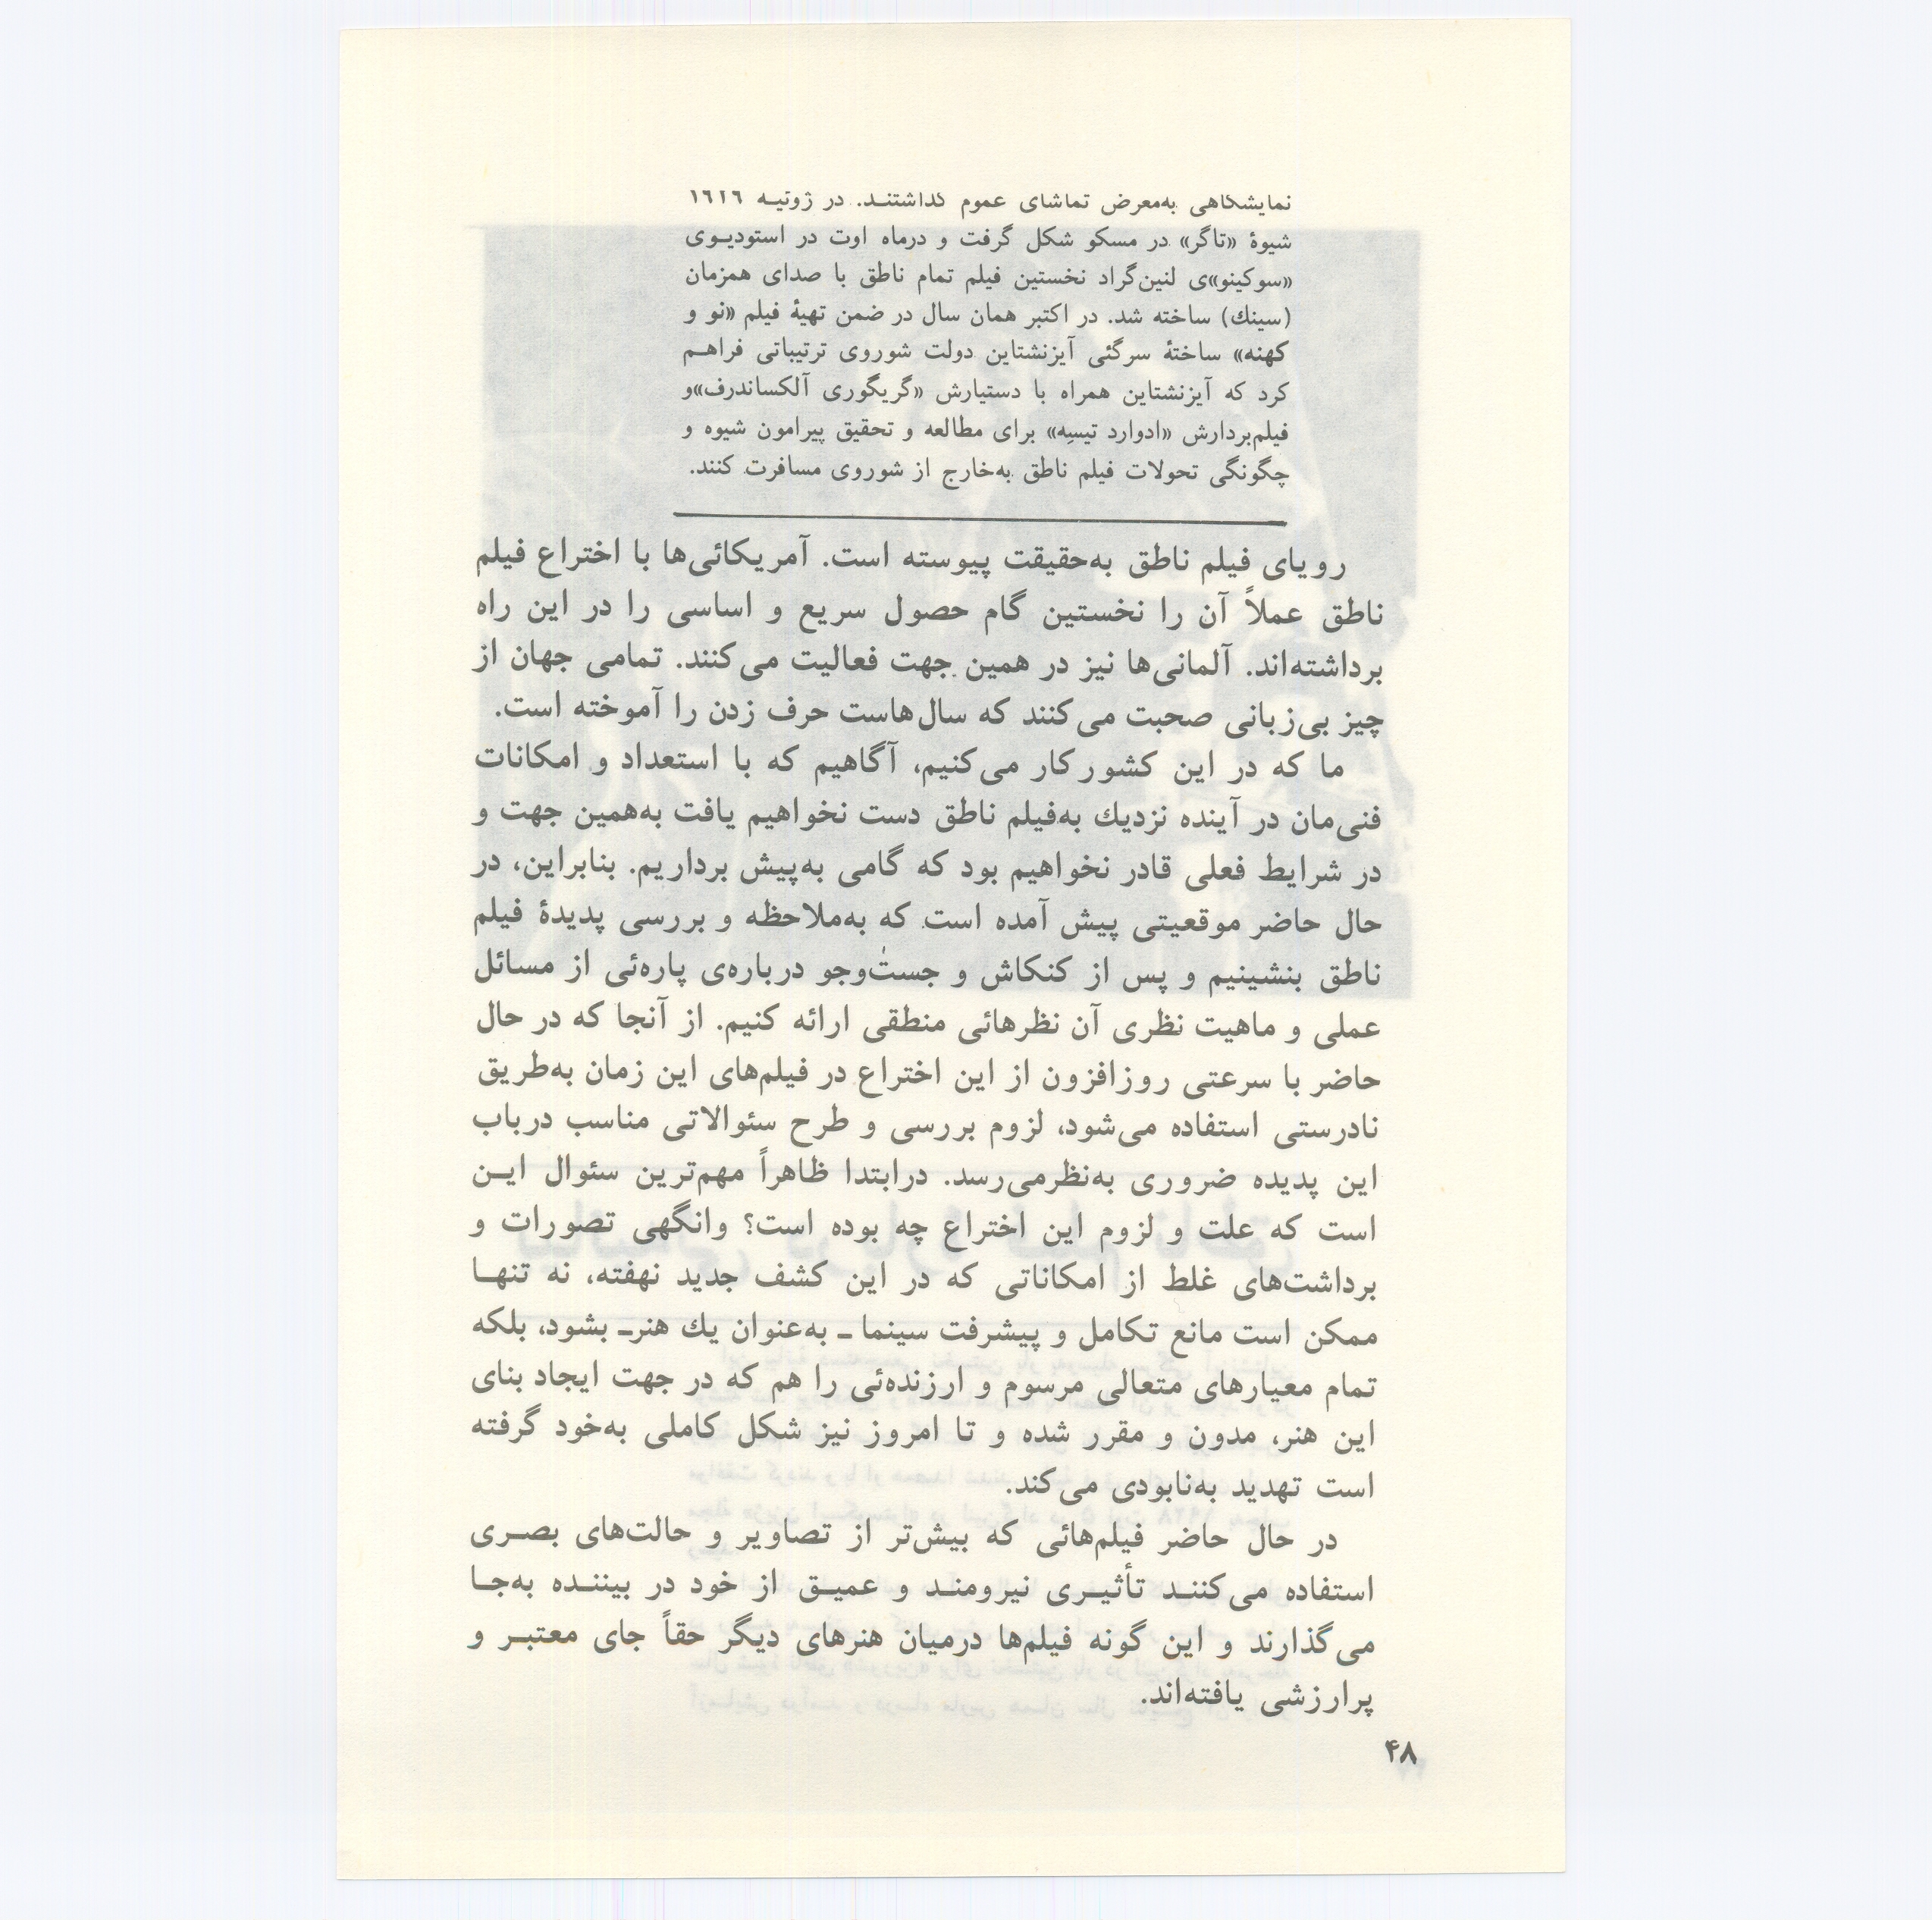 نمایشگاهی به‌معرض تماشای عموم گذاشتنـد. در ژوئیـه
شیوهٔ «تاگر» در مسکو شکل گرفت و درماه اوت در استودیـوی
«سوکینو»ی لنین‌گراد نخستین فیلم تمام ناطق با صدای همزمان
(سینك) ساخته شد. در اکتبر همان سال در ضمن تهیهٔ فیلم «نو و
کهنه» ساختهٔ سرگئی آیزنشتاین دولت شوروی ترتیباتی فراهـم
کرد که آیزنشتاین همراه با دستیارش «گریگوری آلکساندرف»و
فیلم‌بردارش «ادوارد تیسِه» برای مطالعه و تحقیق پیرامون شیوه و
چگونگی تحولات فیلم ناطق به‌خارج از شوروی مسافرت کنند.
رویای فیلم ناطق به‌حقیقت پیوسته است. آمریکائی‌ها با اختراع فیلم
ناطق عملاً آن را نخستین گام حصول سریع و اساسی را در این راه
برداشته‌اند. آلمانی‌ها نیز در همین جهت فعالیت می‌کنند. تمامی جهان از
چیز بی‌زبانی صحبت می‌کنند که سال‌هاست حرف زدن را آموخته است.
ما که در این کشور کار می‌کنیم، آگاهیم که با استعداد و امکانات
فنی‌مان در آینده نزدیك به‌فیلم ناطق دست نخواهیم یافت به‌همین جهت و
در شرایط فعلی قادر نخواهیم بود که گامی به‌پیش برداریم. بنابراین، در
حال حاضر موقعیتی پیش آمده است که به‌ملاحظه و بررسی پدیدهٔ فیلم
ناطق بنشینیم و پس از کنکاش و جست‌وجو درباره‌ی پاره‌ئی از مسائل
عملی و ماهیت نظری آن نظرهائی منطقی ارائه کنیم. از آنجا که در حال
حاضر با سرعتی روزافزون از این اختراع در فیلم‌های این زمان به‌طریق
نادرستی استفاده می‌شود، لزوم بررسی و طرح سئوالاتی مناسب درباب
این پدیده ضروری به‌نظرمی‌رسد. درابتدا ظاهراً مهم‌ترین سئوال ایـن
است که علت و لزوم این اختراع چه بوده است؟ وانگهی تصورات و
برداشت‌های غلط از امکاناتی که در این کشف جدید نهفته، نه تنهـا
ممکن است مانع تکامل و پیشرفت سینما ـ به‌عنوان یك هنرـ بشود، بلکه
تمام معیارهای متعالی مرسوم و ارزنده‌ئی را هم که در جهت ایجاد بنای
این هنر، مدون و مقرر شده و تا امروز نیز شکل کاملی به‌خود گرفته
است تهدید به‌نابودی می‌کند.
در حال حاضر فیلم‌هائی که بیش‌تر از تصاویر و حالت‌های بصـری
استفاده می‌کننـد تأثیـری نیرومنـد و عمیـق از خود در بیننـده به‌جـا
می‌گذارند و این گونه فیلم‌ها درمیان هنرهای دیگر حقاً جای معتبـر و
پرارزشی یافته‌اند.
۴۸